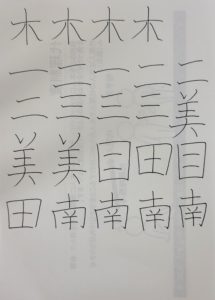 木 木 木 木
一 二 一 二 二
二 三 三 三 美
美 美 日 田 日
田 南 南 南 南